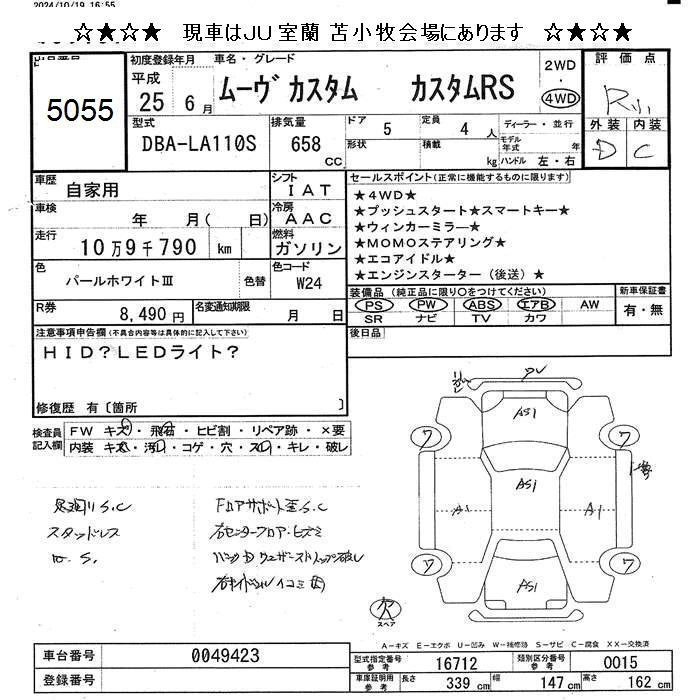 2024/10/19 16:55
☆★☆★ 現車はJU室蘭 苫小牧会場にあります ☆★☆★
5055
初度登録年月 車名・グレード
平成 25 6月
ムーヴ カスタム カスタムRS
2WD
・
4WD
評価点
外装 内装
D C
型式
DBA-LA110S
排気量
658 cc
ドア 5
定員 4 人
形状
積載 kg
ディーラー・並行
モデル年式 年
ハンドル 左・右
車歴 自家用
シフト IAT
車検 年 月( 日)
冷房 AAC
走行 10万9千790 km
燃料 ガソリン
色 パールホワイトⅢ 色替
色コード W24
R券 8,490円
名変通知期限 月 日
セールスポイント(正常に機能するものに限ります)
★4WD★
★プッシュスタート★スマートキー★
★ウィンカーミラー★
★MOMOステアリング★
★エコアイドル★
★エンジンスターター(後送)★
装備品 (純正品に限り○をつけてください)
PS PW ABS エアB AW
SR ナビ TV カワ
新車保証書
有・無
後日品
注意事項申告欄(不具合内容等は具体的に記入して下さい)
HID?LEDライト?
修復歴 有〔箇所 〕
検査員記入欄
FW キズ・飛石・ヒビ割・リペア跡・×要
内装 キズ・汚れ・コゲ・穴・スレ・キレ・破レ
スタッドレス
AS1
ワ ワ
A1 AS1 A1
ワ ワ
AS1
欠
スペア
A―キズ E―エクボ U―凹み W―補修跡 S―サビ C―腐食 XX―交換済
車台番号 0049423
登録番号
型式指定番号 参考 16712
類別区分番号 参考 0015
車庫証明用 参考 長さ 339 cm 幅 147 cm 高さ 162 cm